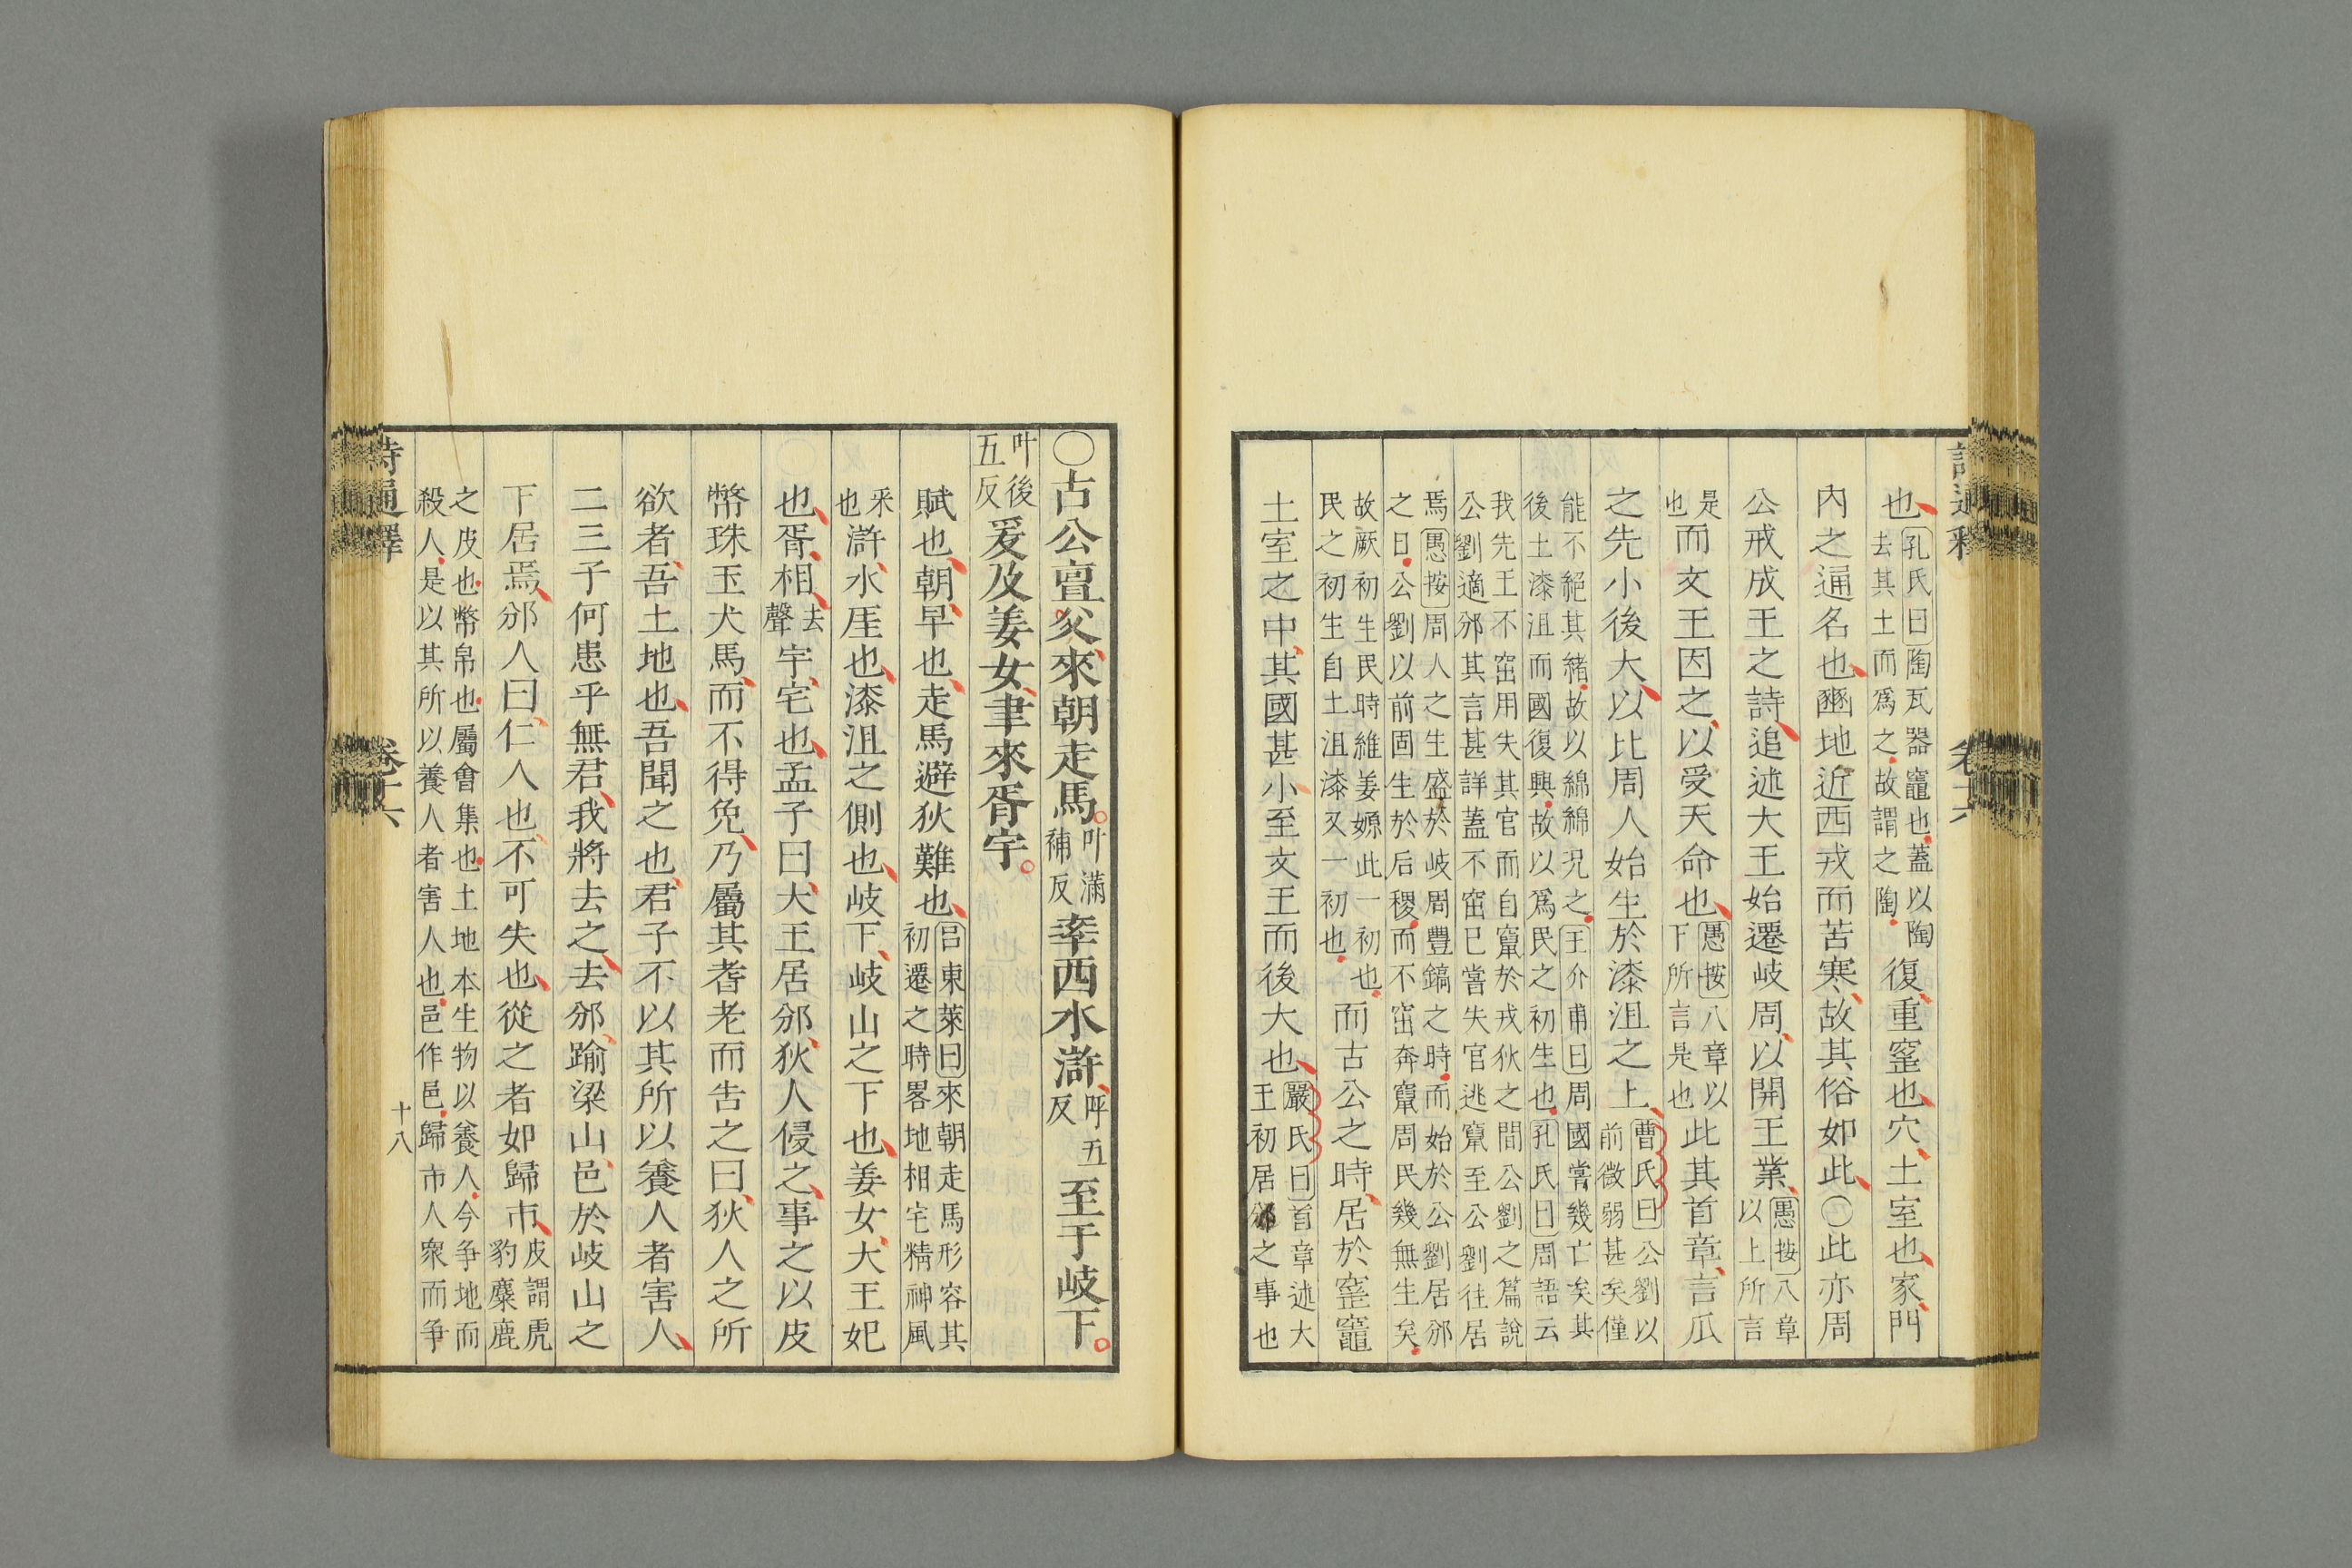 也孔氏曰陶瓦器竈也蓋以陶去其土而爲之故謂之陶復重窑也穴土室也家門
內之通名也豳地近西戎而苦寒故其俗如此○此亦周
公戒成王之詩追述大王始遷岐周以開王業愚按八章以上所言
是也而文王因之以受天命也愚按八章以下所言是也此其首章言瓜
之先小後大以比周人始生於漆沮之上曹氏曰公劉以前微弱甚矣僅
能不絕其緒故以綿綿況之王介甫曰周國嘗幾亡矣其後土漆沮而國復興故以爲民之初生也孔氏曰周語云
我先王不窋用失其官而自竄於戎狄之間公劉之篇說公劉適邠其言甚詳蓋不窋已嘗失官逃竄至公劉往居
焉愚按周人之生盛於岐周豐鎬之時而始於公劉居邠之日公劉以前固生於后稷而不窋奔竄周民幾無生矣
故厥初生民時維姜嫄此一初也民之初生自土沮漆又一初也而古公之時居於窑竈
土室之中其國甚小至文王而後大也嚴氏曰首章述大王初居邠之事也
○古公亶父來朝走馬叶滿補反率西水滸呼五反至于岐下
叶後五反爰及姜女聿來胥宇
賦也朝早也走馬避狄難也呂東萊曰來朝走馬形容其初遷之時畧地相宅精神風
采也滸水厓也漆沮之側也岐下岐山之下也姜女大王妃
也胥相去聲宇宅也孟子曰大王居邠狄人侵之事之以皮
幣珠玉犬馬而不得免乃屬其耆老而告之曰狄人之所
欲者吾土地也吾聞之也君子不以其所以養人者害人
二三子何患乎無君我將去之去邠踰梁山邑於岐山之
下居焉邠人曰仁人也不可失也從之者如歸市皮謂虎豹麋鹿
之皮也幣帛也屬會集也土地本生物以養人今爭地而殺人是以其所以養人者害人也邑作邑歸市人衆而爭
詩通釋
卷十六
十八